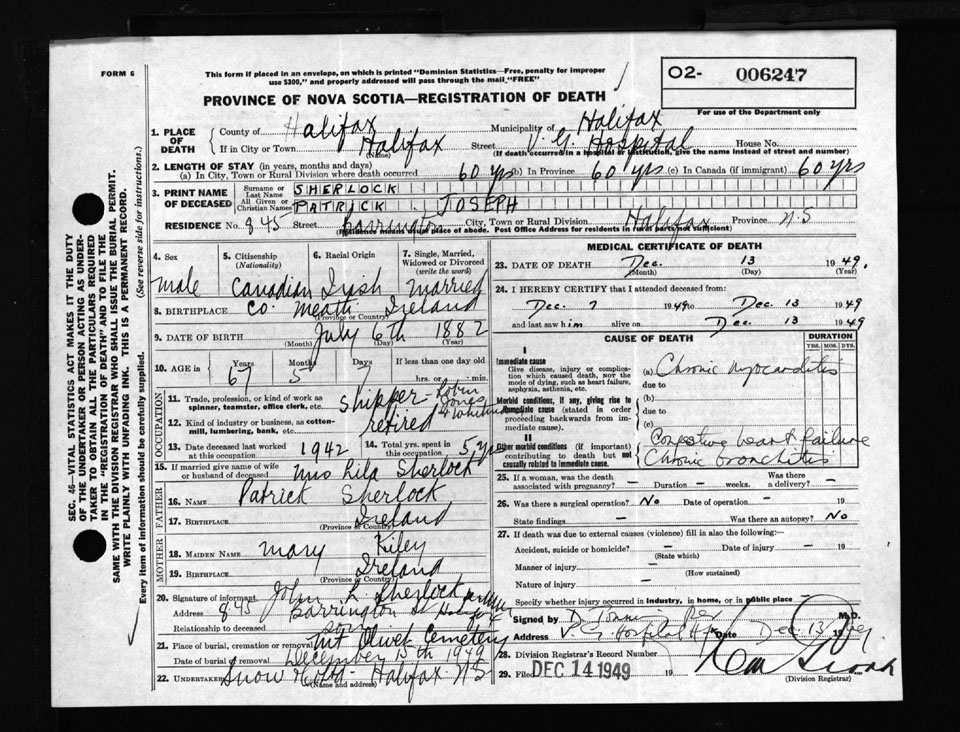 FORM 6
This form if placed in an envelope, on which is printed "Dominion Statistics—Free, penalty for improper
use $300," and properly addressed will pass through the mail "FREE"
O2- 006247
For use of the Department only
PROVINCE OF NOVA SCOTIA—REGISTRATION OF DEATH
SEC. 46—VITAL STATISTICS ACT MAKES IT THE DUTY
OF THE UNDERTAKER OR PERSON ACTING AS UNDER-
TAKER TO OBTAIN ALL THE PARTICULARS REQUIRED
IN THE "REGISTRATION OF DEATH" AND TO FILE THE
SAME WITH THE DIVISION REGISTRAR WHO SHALL ISSUE THE BURIAL PERMIT.
WRITE PLAINLY WITH UNFADING INK. THIS IS A PERMANENT RECORD.
Every item of information should be carefully supplied. (See reverse side for instructions.)
1. PLACE OF DEATH
County of Halifax Municipality of Halifax
If in City or Town Halifax Street V. G. Hospital House No.
(Name) (If death occurred in a hospital or institution, give the name instead of street and number)
2. LENGTH OF STAY (in years, months and days)
(a) In City, Town or Rural Division where death occurred 60 yrs (b) In Province 60 yrs (c) In Canada (if immigrant) 60 yrs
3. PRINT NAME OF DECEASED
Surname or Last Names SHERLOCK
All Given or Christian Names PATRICK JOSEPH
RESIDENCE No. 845 Street Barrington City, Town or Rural Division Halifax Province N.S
(Residence means usual place of abode. Post Office Address for residents in rural parts not sufficient)
4. Sex
Male
5. Citizenship (Nationality)
Canadian
6. Racial Origin
Irish
7. Single, Married, Widowed or Divorced (write the word)
Married
8. BIRTHPLACE Co. Meath Ireland
(Province or Country)
9. DATE OF BIRTH July 6th 1882
(Month) (Day) (Year)
10. AGE in Years Months Days If less than one day
67 5 7 hrs. or min.
OCCUPATION
11. Trade, profession, or kind of work as
spinner, teamster, office clerk, etc. Shipper - Robin Jones & Whitman
12. Kind of industry or business, as cotton-
mill, lumbering, bank, etc. retired
13. Date deceased last worked at this occupation 1942
14. Total yrs. spent in this occupation 5 yrs
15. If married give name of wife
or husband of deceased Mrs Rila Sherlock
FATHER
16. NAME Patrick Sherlock
17. BIRTHPLACE Ireland
(Province or Country)
MOTHER
18. MAIDEN NAME Mary Kiley
19. BIRTHPLACE Ireland
(Province or Country)
20. Signature of informant John L. Sherlock
Address 845 Barrington St Halifax
Relationship to deceased son
21. Place of burial, cremation or removal Mt Olivet Cemetery
Date of burial or removal December 15th 1949
22. UNDERTAKER Snow Halifax NS
(Name and address)
MEDICAL CERTIFICATE OF DEATH
23. DATE OF DEATH Dec. 13 1949
(Month) (Day) (Year)
24. I HEREBY CERTIFY that I attended deceased from:
Dec. 7 1949 to Dec. 13 1949
and last saw him alive on Dec. 13 1949
CAUSE OF DEATH
DURATION
YRS. MOS. DYS.
I
Immediate cause
Give disease, injury or complica-
tion which caused death, not the
mode of dying, such as heart failure,
asphyxia, asthenia, etc.
(a) Chronic myocarditis
due to
Morbid conditions, if any, giving rise to
immediate cause (stated in order
proceeding backwards from im-
mediate cause).
(b)
due to
(c)
II
Other morbid conditions (if important)
contributing to death but not
causally related to immediate cause.
Congestive heart failure
Chronic bronchitis
25. If a woman, was the death
associated with pregnancy? — Duration — weeks. Was there a delivery? —
26. Was there a surgical operation? No Date of operation — 19
State findings — Was there an autopsy? No
27. If death was due to external causes (violence) fill in also the following:—
Accident, suicide or homicide? — Date of injury — 19
(State which)
Manner of injury —
(How sustained)
Nature of injury —
Specify whether injury occurred in industry, in home, or in public place —
Signed by M.D.
Address V. G. Hospital Hfx Date Dec. 13 19
28. Division Registrar's Record Number
29. Filed DEC 14 1949 19
(Division Registrar)